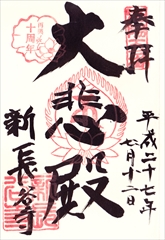 奉拝
平成二十七年
七月十二日
大悲殿
新長谷寺
十周年